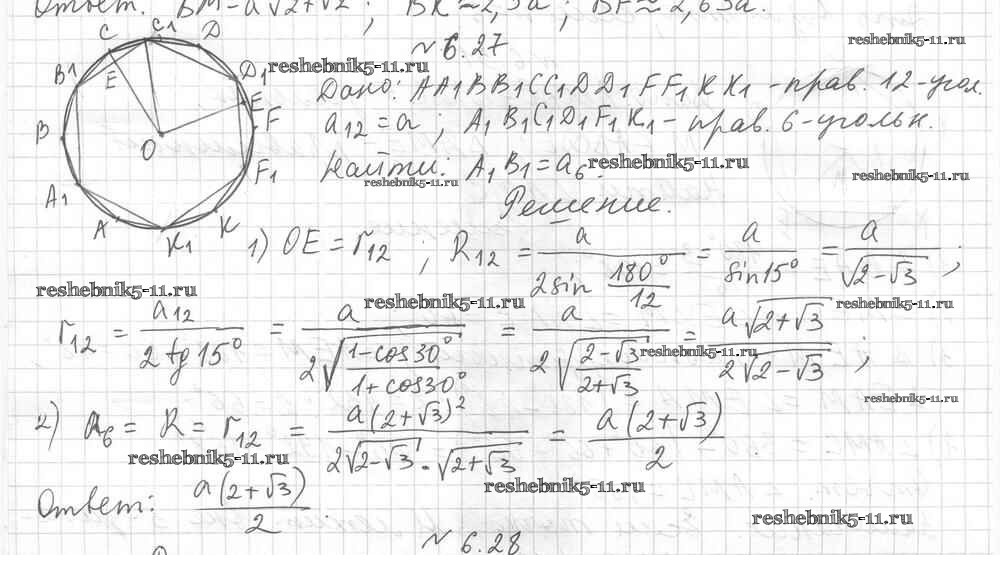 Ответ: BM = a√2+√2 ; BK ≈ 2,5a ; BF ≈ 2,63a.
N 6.27
Дано: AA₁BB₁CC₁DD₁FF₁KK₁ - прав. 12-угол.
a₁₂ = a ; A₁B₁C₁D₁F₁K₁ - прав. 6-угольн.
Найти: A₁B₁ = a₆.
Решение.
1) OE = r₁₂ ; R₁₂ = a / (2sin 180°/12) = a / sin15° = a / √(2-√3) ;
r₁₂ = a₁₂ / (2tg15°) = a / (2√((1-cos30°)/(1+cos30°))) = a / (2√((2-√3)/(2+√3))) = a√(2+√3) / (2√(2-√3)) ;
2) a₆ = R = r₁₂ = a(2+√3)² / (2√(2-√3)·√(2+√3)) = a(2+√3) / 2
Ответ: a(2+√3) / 2.
N 6.28
C C₁ D
B₁ E D₁
E
B O F
F₁
A₁
A K₁ K
reshebnik5-11.ru
reshebnik5-11.ru
reshebnik5-11.ru
reshebnik5-11.ru
reshebnik5-11.ru
reshebnik5-11.ru
reshebnik5-11.ru
reshebnik5-11.ru
reshebnik5-11.ru
reshebnik5-11.ru
reshebnik5-11.ru
reshebnik5-11.ru
reshebnik5-11.ru